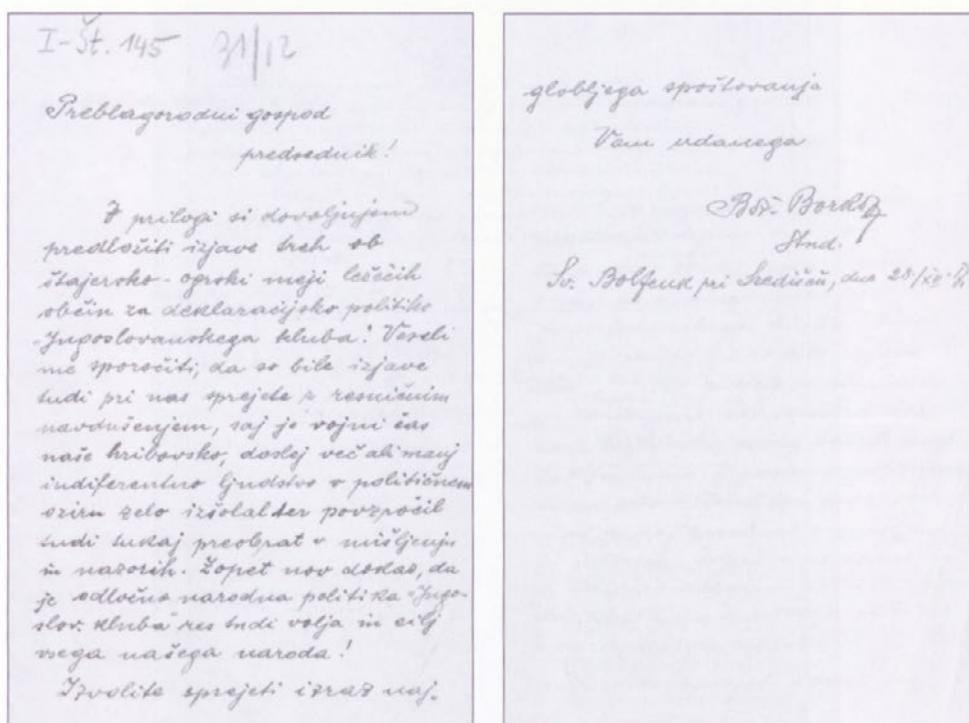 I-Št. 145 31/12
Preblagorodni gospod
predsednik!
V prilogi si dovoljujem
predložiti izjave treh ob
štajersko-ogrski meji ležečih
občin za deklaracijsko politiko
"Jugoslovanskega kluba". Veseli
me sporočiti, da so bile izjave
tudi pri nas sprejete z resničnim
navdušenjem, saj je vojni čas
naše hribovsko, doslej več ali manj
indiferentno ljudstvo v političnem
oziru zelo izšolal ter povzročil
tudi tukaj preobrat v mišljenju
in nazorih. Zopet nov dokaz, da
je odločno narodna politika "Jugo-
slov. kluba" res tudi volja in cilj
vsega našega naroda!
Izvolite sprejeti izraz naj-
globljega spoštovanja
Vam udanega
Bož. Borko
Stud.
Sv. Bolfenk pri Središču, dne 28/XII.